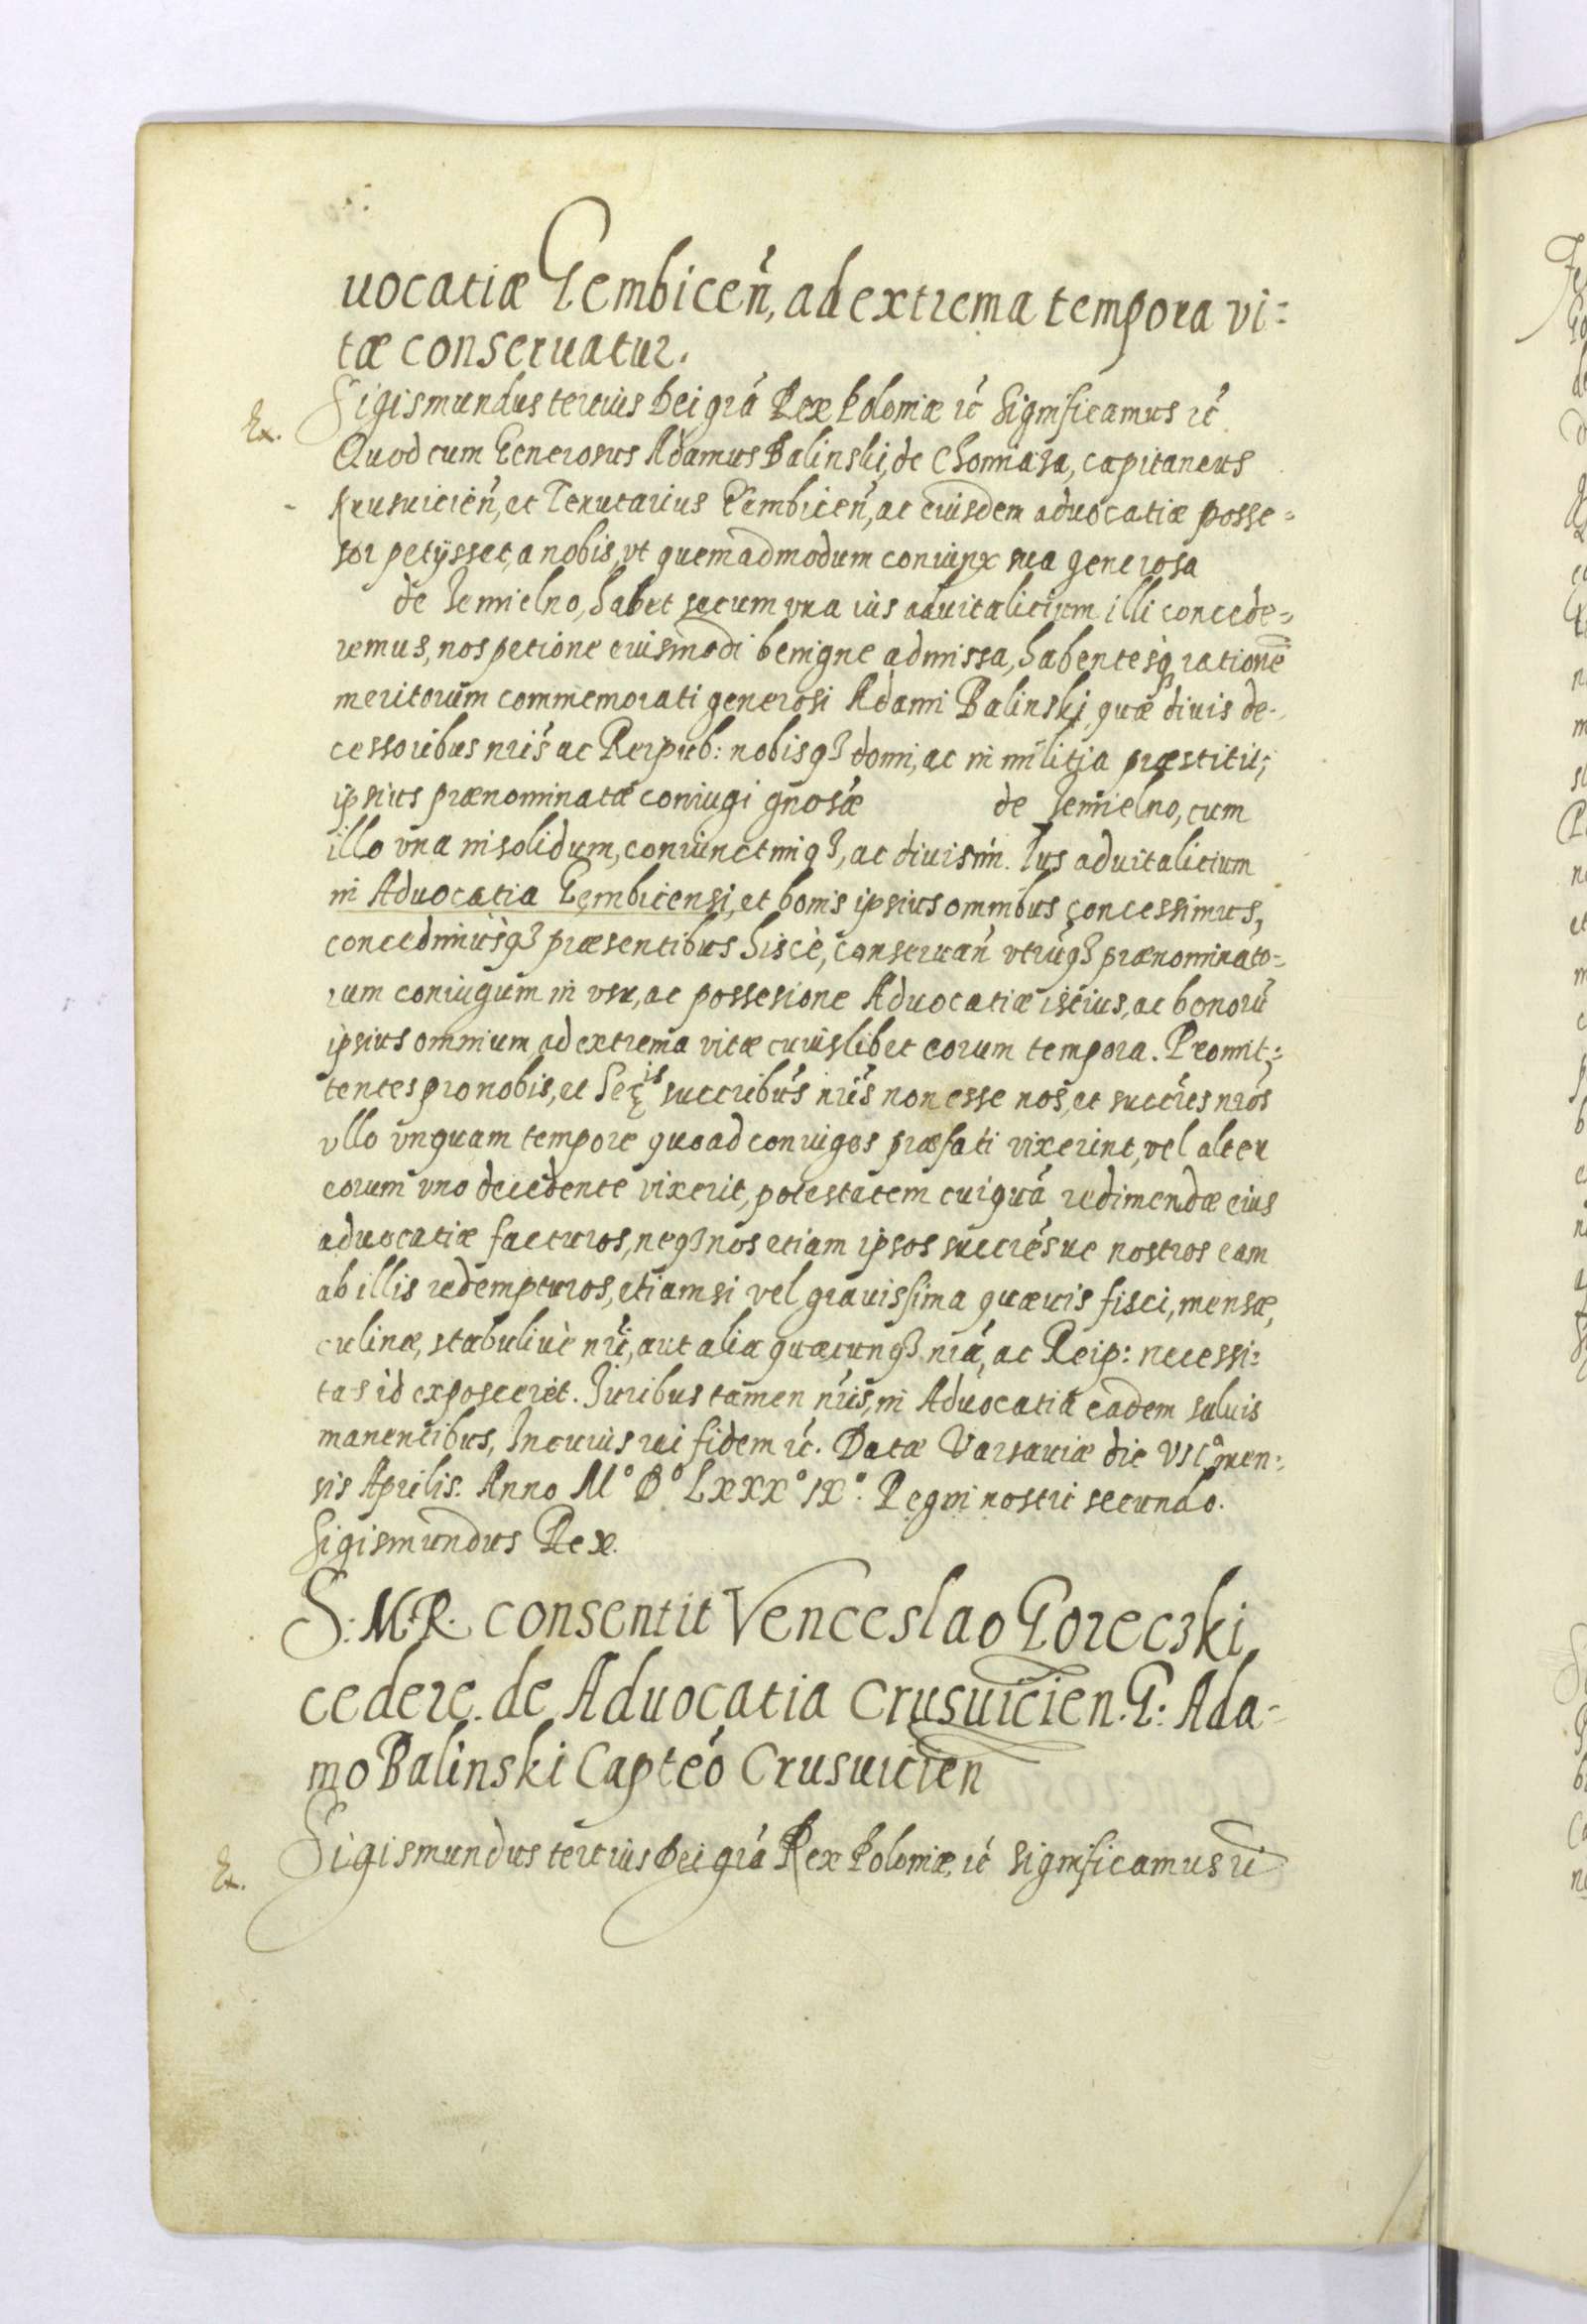 uocatiæ Gembiceñ, ad extrema tempora vi:
tæ conseruatur.
Ex. Sigismundus tertius Dei grã Rex Poloniæ ꝛc̃ Significamus ꝛc̃
Quod cum Generosus Adamus Balinski, de Chomiasa, capitaneus
- Krusuicieñ, et Tenutarius Gembiceñ, ac eiusdem aduocatiæ posse=
sor petÿsset, a nobis, vt quemadmodum coniunx sua generosa
de Jemielno, habet secum vna ius aduitalitium illi concede=
remus, nos petione eiusmodi benigne admissa, habentesq̃ rationẽ
meritorum commemorati generosi Adami Balinski, quæ diuis de-
cessoribus nris̃ ac Reipub: nobisqꝫ domi, ac in militia præstitit;
ipsius prænominatæ coniugi gnosæ̃ de Jemielno, cum
illo vna insolidum, coniunctimqꝫ, ac diuisim. Ius aduitalitium
in Aduocatia Gembicensi, et bonis ipsius omnibus concessimus,
concedimusqꝫ præsentibus hisce, conseruañ vtrũqꝫ prænominato=
rum coniugum in vsu, ac possesione Aduocatiæ istius, ac bonorũ
ipsius omnium ad extrema vitæ cuiuslibet eorum tempora. Promit:
tentes pro nobis, et Ser̃is succribũs nris̃ non esse nos, et succr̃es nros̃
vllo vnquam tempore quoad coniuges præfati vixerint, vel alter
eorum vno decedente vixerit, potestatem cuiquã redimendæ eius
aduocatiæ facturos, neqꝫ nos etiam ipsos succrẽsue nostros eam
ab illis redempturos, etiamsi vel grauissima quæuis fisci, mensæ,
culinæ, stabuliuè nrĩ, aut alia quæcunqꝫ nrã, ac Reip: necessi:
tas id exposcerit. Juribus tamen nris̃, in Aduocatia eadem saluis
manentibus, In cuius rei fidem ꝛc̃. Datæ Varsauiæ die VIIª men:
sis Aprilis. Anno M° D° LXXX° IX°. Regni nostri secundo.
Sigismundus Rex.
S. M. R. consentit Venceslao Goreczki
cedere de Aduocatia Crusuicien. G: Ada-
mo Balinski Captẽo Crusuicien
Ex. Sigismundus tertius Dei grã Rex Poloniæ, ꝛc̃ significamus ꝛc̃